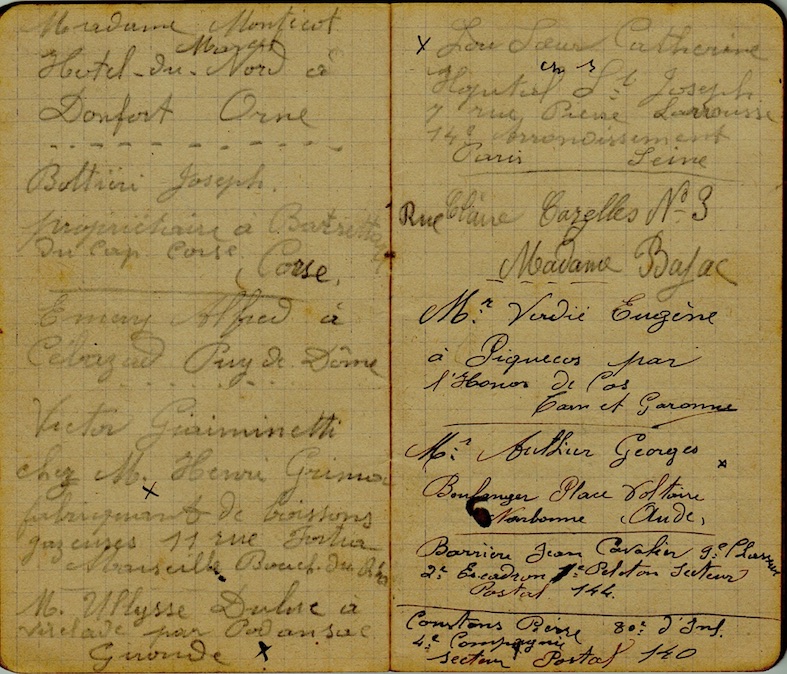 Madame Monticot
Hotel-du-Nord à
Donfort Orne
Bottieri Joseph.
propriéthaire à
Du Cap Corse
Corse.
Emery Alfred à
Cébazad Puy de Dôme
Victor Giaiminetti
chez M. Henri
fabriquant de boissons
gazeuses 11 rue
Marseille Bouch. du
M. Ullysse à
Virelade par Podansac
Gironde x
x Sœur Catherine
Hôpital St Joseph
7 rue, Pierre Larrousse
14e Arrondissement
Paris Seine
Rue Claire Cazelles No 3
Madame Bajac
Mr Verdié Eugène
à Piquecos par
l'Honor de Cos
Tarn et Garonne
Mr Authier Georges x
Boulanger Place Voltaire
Narbonne (Aude)
Barrière Jean Cavalier 9e
2e Escadron 1e Peloton Secteur
Postal 144
Constans Pierre 80e d'Inf.
4e Compagnie
Secteur Postal 140